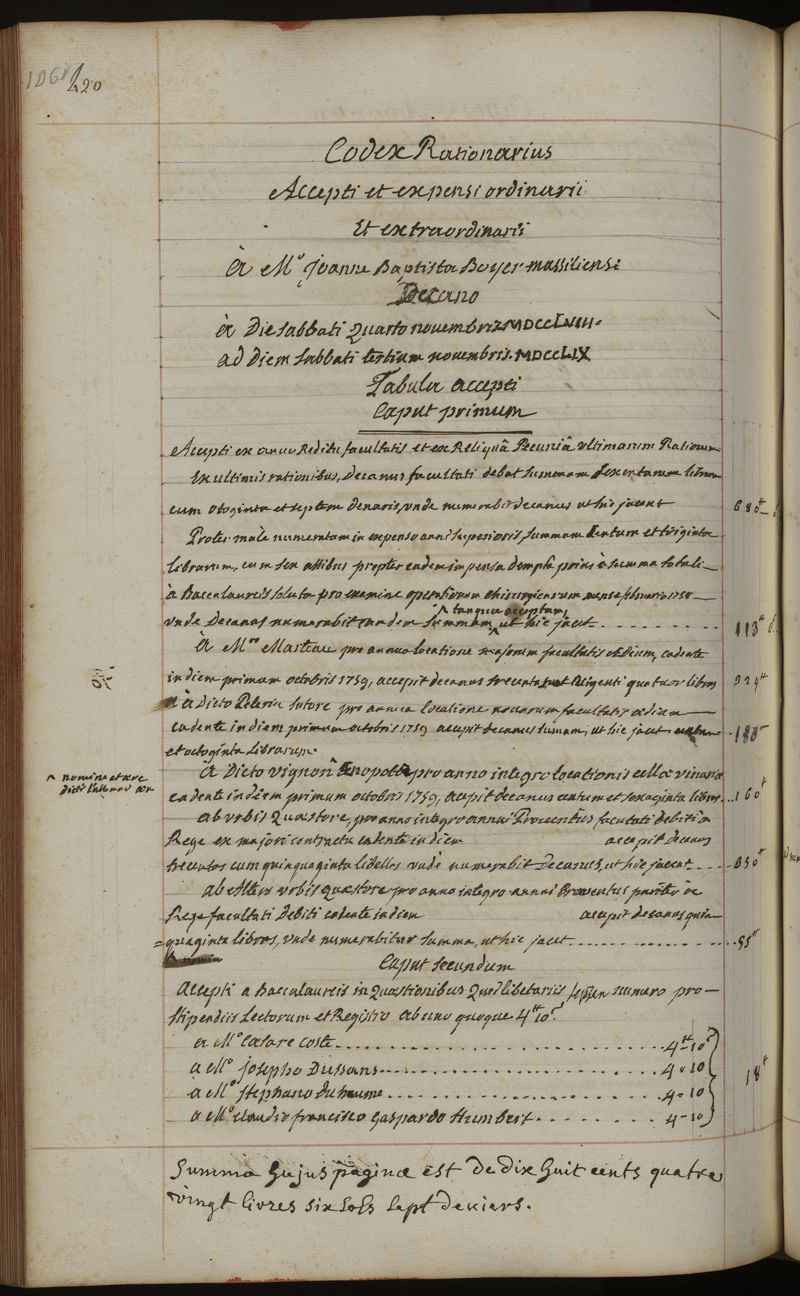 1061 420
Codex Rationarius
Accepti et expensi ordinarii
Et extraordinarii
à Mº Joanne Baptista Boyer massiliensi
Decano
à Die Sabbati Quarto novembris MDCCLVIII.
ad diem Sabbati tertium novembris MDCCLIX
Tabula accepti
Caput primum
Accepti ex annuo Reditu facultatis et ex Reliquâ Pecuniâ ultimarum Rationum
Ex ultimis rationibus, Decanus facultati debet summam sexentarum librarum
cum otoginta et septem denariis, unde numerabit decanus ut hic jacent 680
Propter male numeratam in expenso anni superioris summam centum et triginta
librarum, cum sex assibus propter eadem impensa dempta prius è summa totali
à Baccalaureis soluta pro examine operationum chirurgicarum mense februario 1758
^ tanquam acceptam,
unde Decanus numerabit eandem summam, ut hic jacet 113
à Mro Marteau pro annua locatione majorum facultatis ædium, cadente
in diem primum octobris 1759, accepit decanus trecentas et viginti quatuor libras 324
à Dicto Pelerin sutore pro annua locatione novarum facultatis ædium
cadente in diem primum octobris 1759 accepit decanus summam, ut hic jacet centum 180
et octoginta Librarum.
^ nomine et ære
à Dicto vignon Œnopola pro anno integro locationis cellæ vinariæ
cadente in diem primum octobris 1759, accepit decanus centum et sexaginta libras 160
ab urbis Quæstore, pro anno integro annui Proventus facultati debiti a
Rege ex majori contractu cadente in diem accepit decanus
trecentos cum quinquaginta libellos unde numerabit Decanus, ut hic jaceat 350
ab altero urbis quæstore pro anno integro annui Proventus pariter à
Rege facultati Debiti cadente in diem accepit decanus quin=
=quaginta libras, unde numerabitur summa, ut hic jacet 55
Caput secundum
Accepti a Baccalaureis in Quæstionibus Quodlibetariis numero pro
stipendiis Lectorum et Registro ab uno quoque 4tt 10s.
a Mº Cæsare Coste 4tt-10s
a Mº Josepho Dussans 4-10
a Mº Stephano duhaume 4-10
a Mº Claudio francisco Gaspardo Humbert 4-10
18tt
Summa hujus paginæ est de dix huit cents quatre
vingt livres six sols sept deniers.